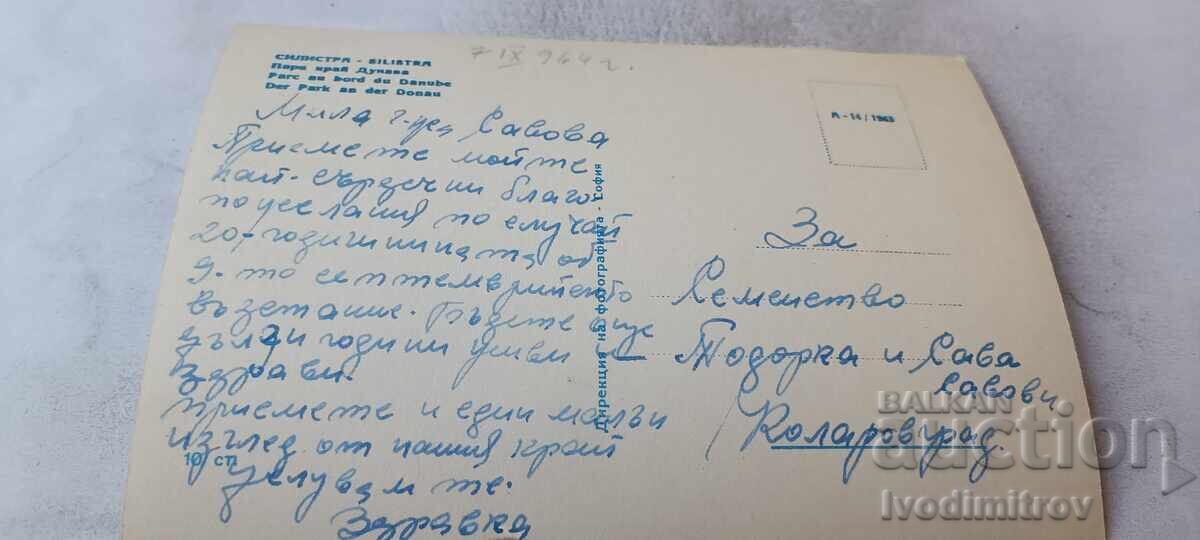 7 IX 964 г.
СИЛИСТРА - SILISTRA
Парк край Дунава
Parc au bord du Danube
Der Park an der Donau
А - 14 / 1963
Мила Савова
Приемете мойте
най-сърдечни благо-
пожелания по случай
20-годишнината от
9-то септемврийското
възстание. Бъдете още
дълги години живи
здрави.
Приемете и един малък
изглед от нашия край
Целувам те.
Здравка
10 ст.
Дирекция на фотографията - София
За
Семейство
Тодорка и Сава
Савови
Коларовград.
BALKAN
auction
Ivodimitrov